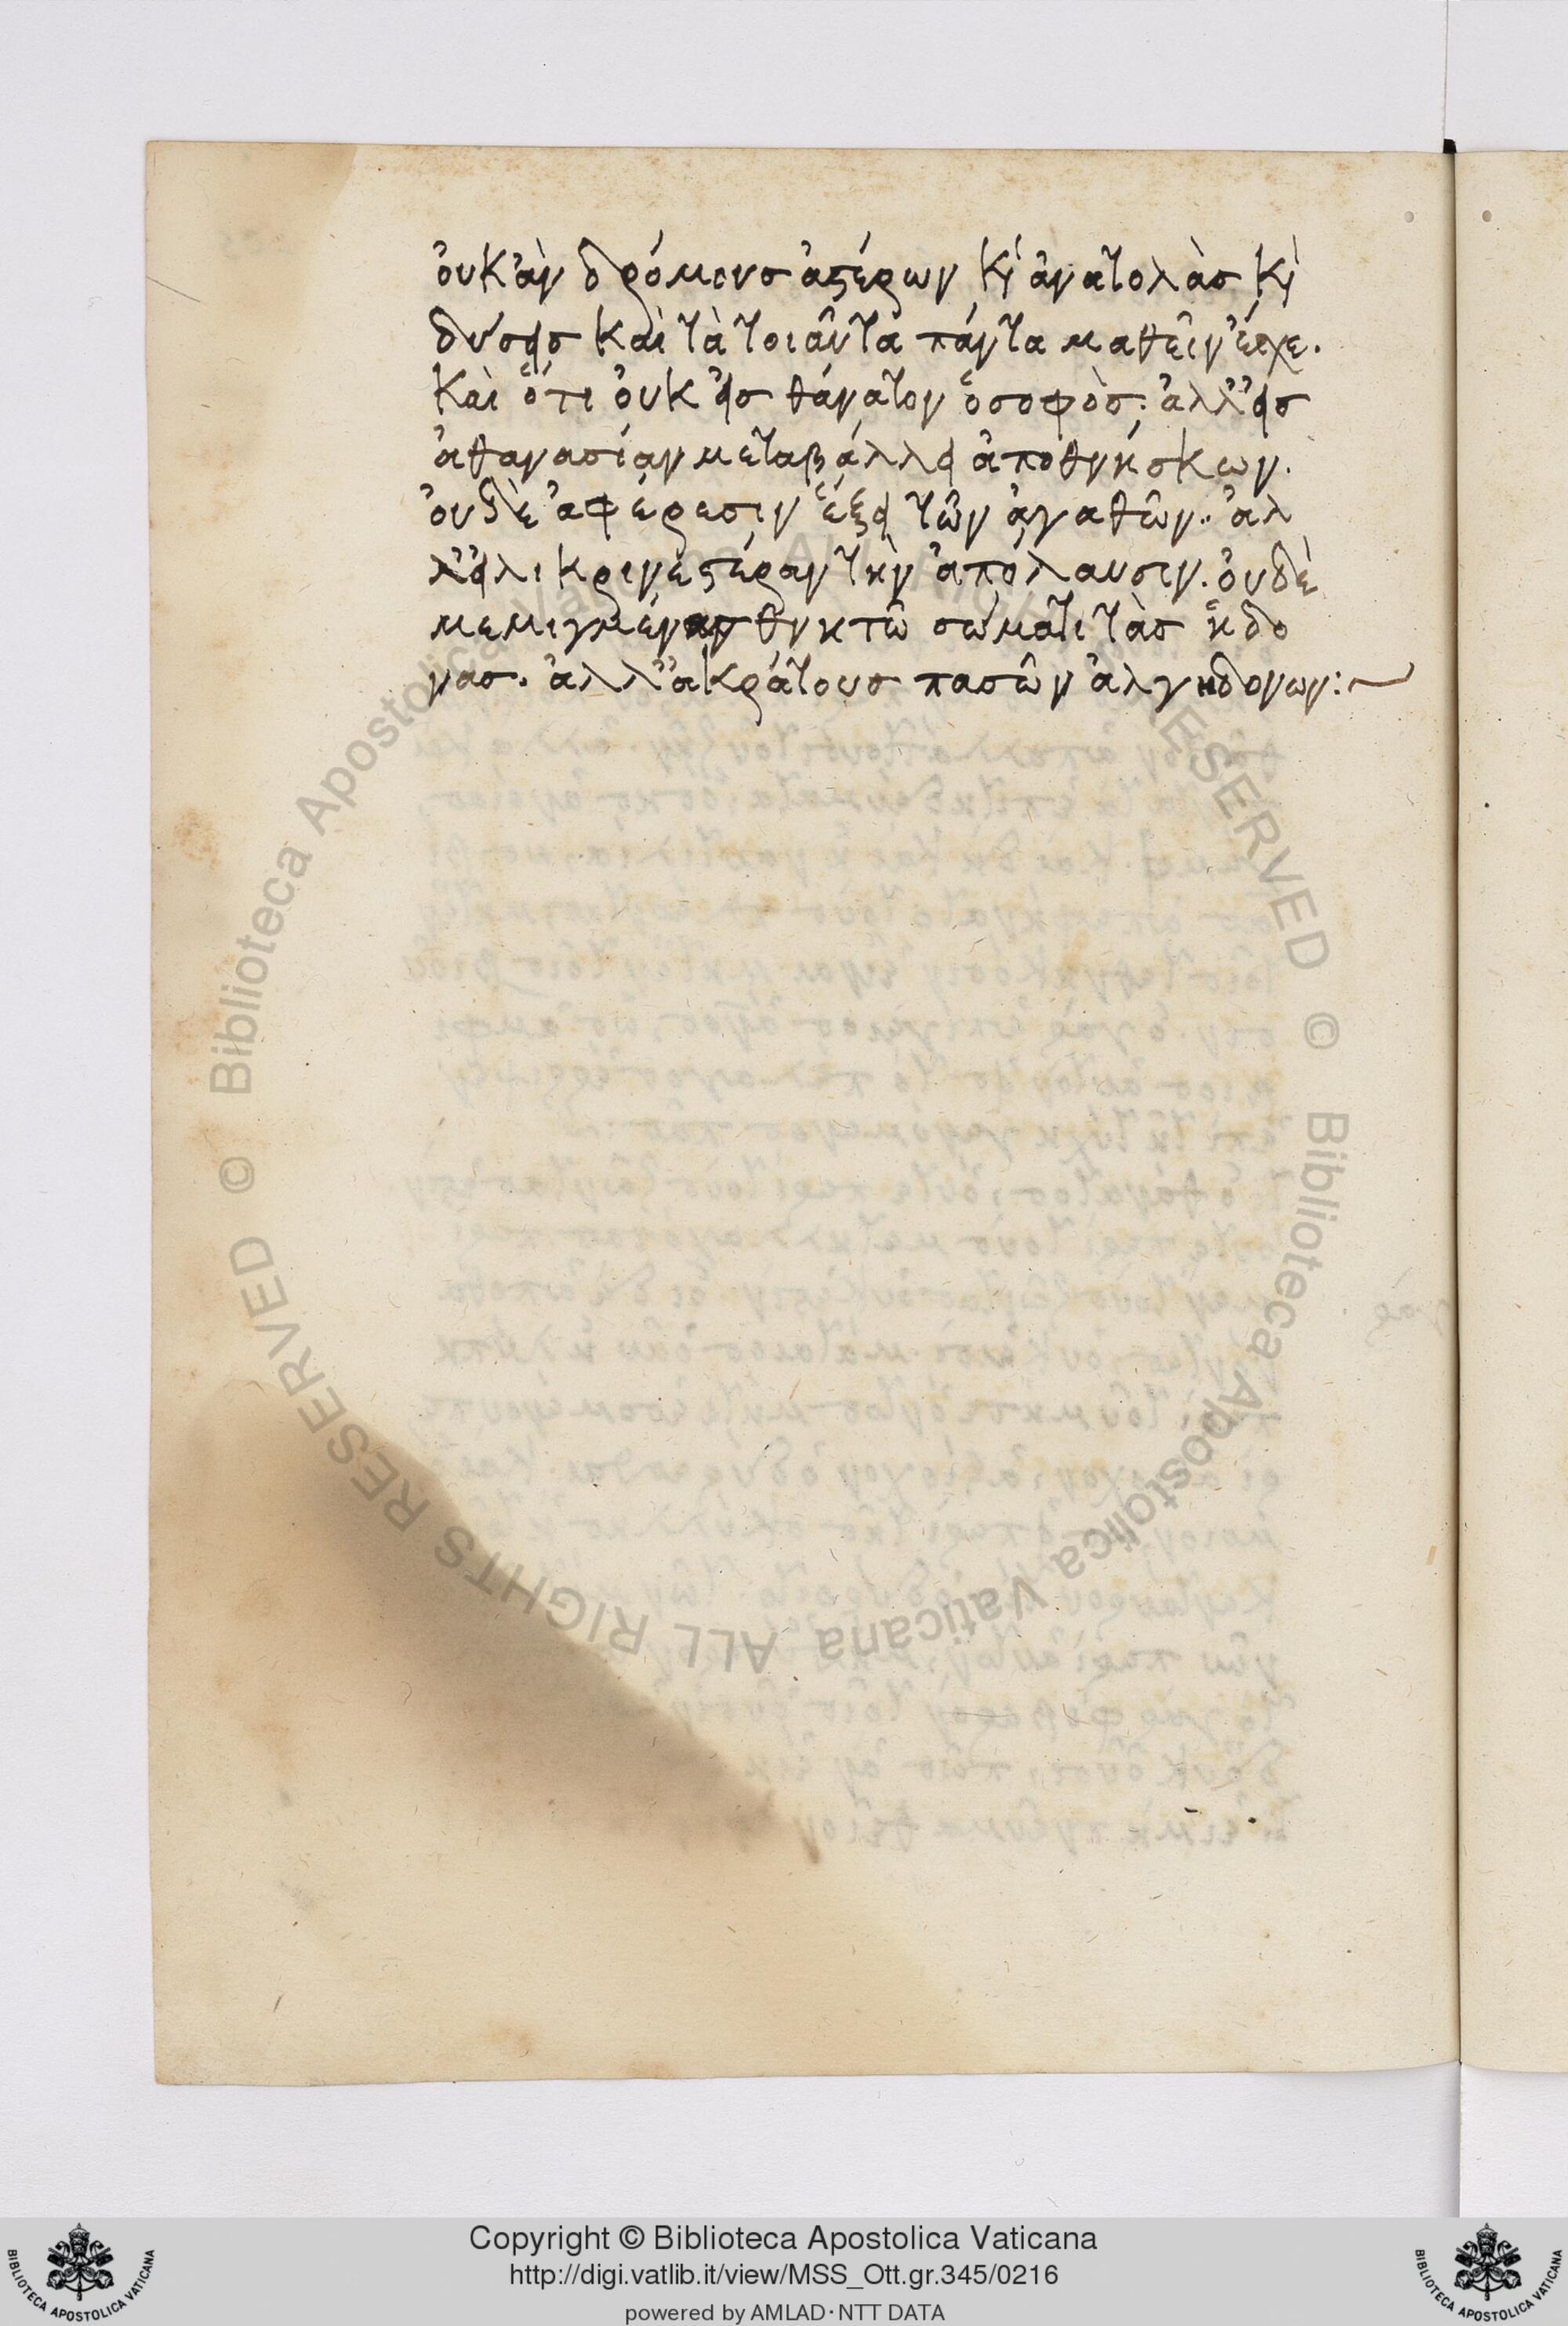 ὀυκ ἀν δρόμους ἀστέρων κὶ ἀνατολὰς κὶ
δύσεις καὶ τὰ τοιαῦτα πάντα μαθεῖν ἔιχε.
καὶ ὅτι ὀυκ εἰς θάνατον ὁ σοφὸς· ἀλλ' εἰς
ἀθανασίαν μεταβάλλει ἀποθνήσκων.
ὀυδὲ ἀφέρεσιν ἕξει τῶν ἀγαθῶν· ἀλ
λ' εἰλικρινεστέραν τὴν ἀπόλαυσιν. ὀυδὲ
μεμιγμένας θνητῶ σώματι τὰς ἡδο
νας. ἀλλ' ἀκράτους πασῶν ἀλγηδονων:~
© Biblioteca Apostolica Vaticana ALL RIGHTS RESERVED © Biblioteca Apostolica Vaticana ALL RIGHTS RESERVED
BIBLIOTECA APOSTOLICA VATICANA
Copyright © Biblioteca Apostolica Vaticana
http://digi.vatlib.it/view/MSS_Ott.gr.345/0216
powered by AMLAD·NTT DATA
BIBLIOTECA APOSTOLICA VATICANA